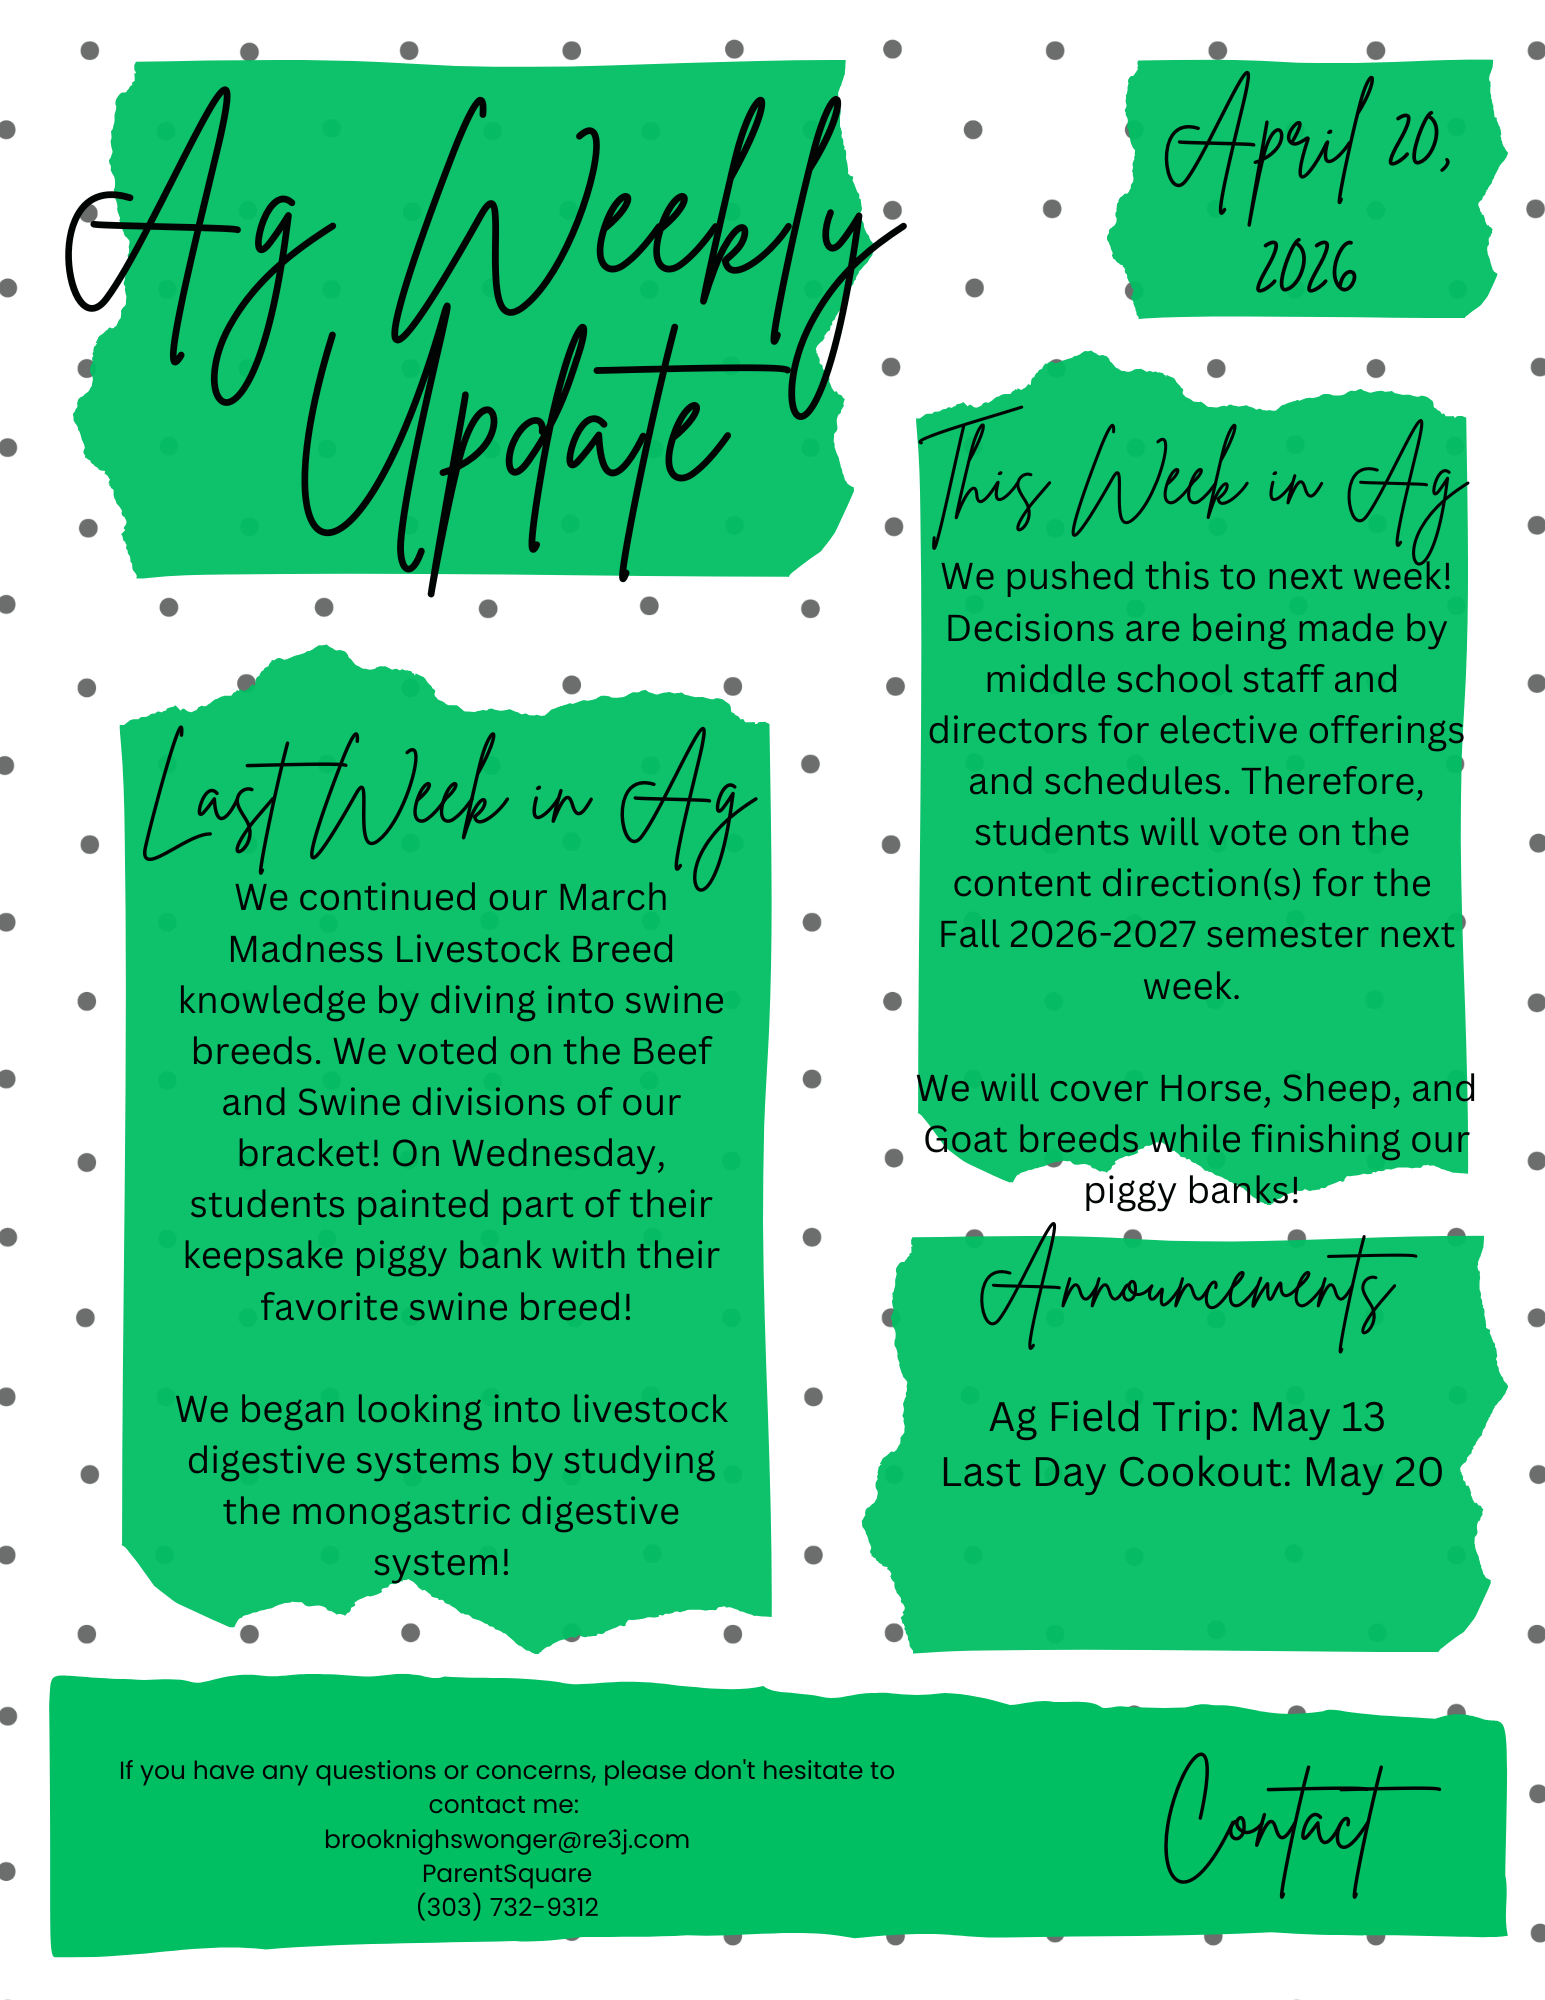 Ag Weekly
Update
April 20,
2026
Last Week in Ag
We continued our March
Madness Livestock Breed
knowledge by diving into swine
breeds. We voted on the Beef
and Swine divisions of our
bracket! On Wednesday,
students painted part of their
keepsake piggy bank with their
favorite swine breed!
We began looking into livestock
digestive systems by studying
the monogastric digestive
system!
This Week in Ag
We pushed this to next week!
Decisions are being made by
middle school staff and
directors for elective offerings
and schedules. Therefore,
students will vote on the
content direction(s) for the
Fall 2026-2027 semester next
week.
We will cover Horse, Sheep, and
Goat breeds while finishing our
piggy banks!
Announcements
Ag Field Trip: May 13
Last Day Cookout: May 20
If you have any questions or concerns, please don't hesitate to
contact me:
brooknighswonger@re3j.com
ParentSquare
(303) 732-9312
Contact